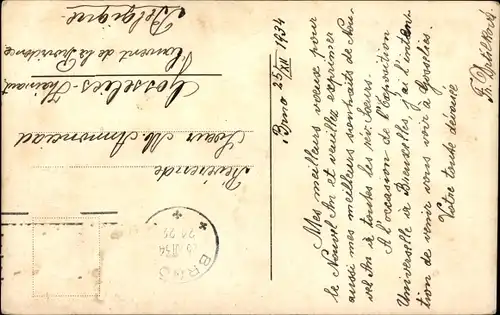 Brno 25/XII 1934
Mes meilleurs vœux pour
le Nouvel An et veuillez exprimer
aussi mes meilleurs souhaits de Nou-
vel An à toutes les rév. Sœurs.
A l'occasion de l'Exposition
Universelle à Bruxelles, j'ai l'inten-
tion de venir vous voir à Gosselies.
Votre toute dévouée
Révérende
Sœur M.
Gosselies - Hainaut
Couvent de la Providence
Belgique
BRNO